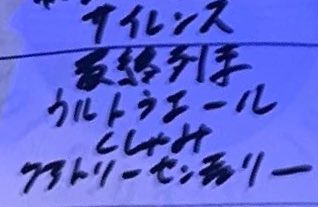 サイレンス
最終列車
ウルトラエール
くしゃみ
ファトリーセンチュリー